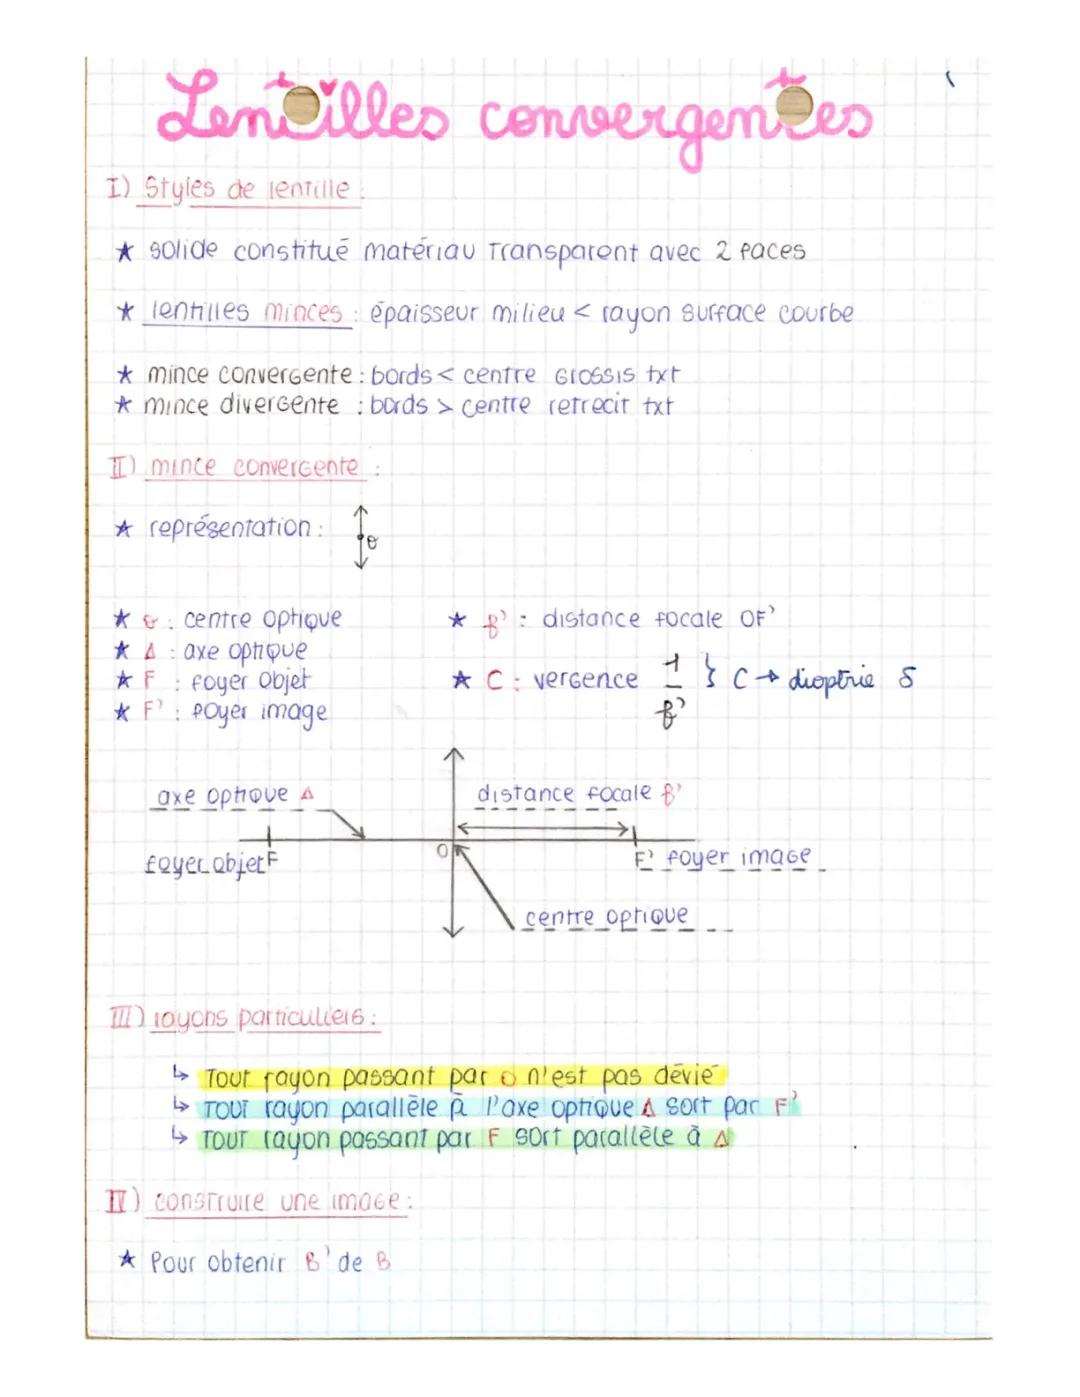 Lentilles convergentes
I) Styles de lentille :
★ solide constitué matériau transparent avec 2 faces
★ lentilles minces : épaisseur milieu < rayon surface courbe
★ mince convergente : bords < centre Grossis txt
★ mince divergente : bords > centre retrecit txt
II) mince convergente :
★ représentation : O
★ O : centre optique
★ Δ : axe optique
★ F : foyer objet
★ F' : foyer image
★ f' : distance focale OF'
★ C : vergence 1/f' } C → dioptrie δ
axe optique Δ
distance focale f'
O
foyer objet F
F' foyer image
centre optique
III) rayons particuliers :
↳ Tout rayon passant par O n'est pas dévié
↳ Tout rayon parallèle à l'axe optique Δ sort par F'
↳ Tout rayon passant par F sort parallèle à Δ
IV) construire une image :
★ Pour obtenir B' de B